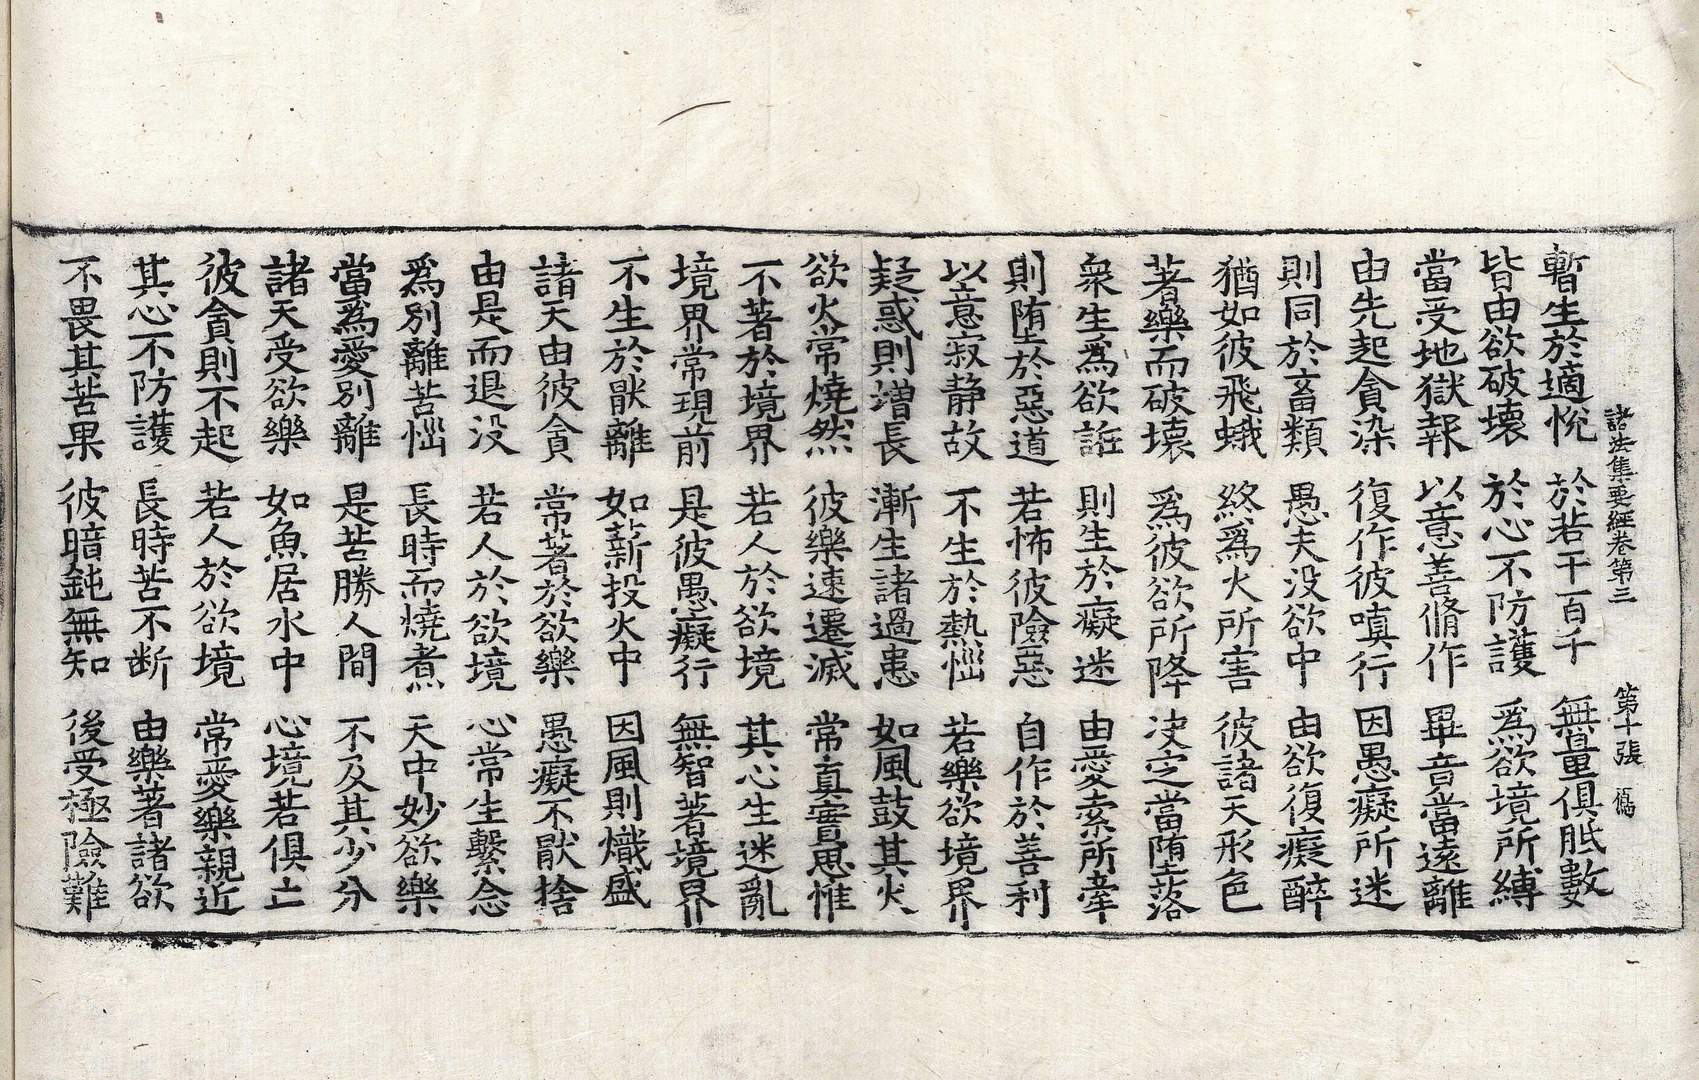 諸法集要經卷第三 第十張 傾
暫生於適悅 於若干百千 無量俱胝數
皆由欲破壞 於心不防護 爲欲境所縛
當受地獄報 以意善脩作 畢竟當遠離
由先起貪染 復作彼嗔行 因愚癡所迷
則同於畜類 愚夫没欲中 由欲復癡醉
猶如彼飛蛾 終爲火所害 彼諸天形色
著樂而破壞 爲彼欲所降 決定當墮落
衆生爲欲誑 則生於癡迷 由愛索所牽
則墮於惡道 若怖彼險惡 自作於善利
以意寂静故 不生於熱惱 若樂欲境界
疑惑則增長 漸生諸過患 如風鼓其火
欲火常燒然 彼樂速遷滅 常真實思惟
不著於境界 若人於欲境 其心生迷亂
境界常現前 是彼愚癡行 無智著境界
不生於猒離 如薪投火中 因風則熾盛
諸天由彼貪 常著於欲樂 愚癡不猒捨
由是而退没 若人於欲境 心常生繫念
爲別離苦惱 長時而燒煮 天中妙欲樂
當爲愛別離 是苦勝人間 不及其少分
諸天受欲樂 如魚居水中 心境若俱亡
彼貪則不起 若人於欲境 常愛樂親近
其心不防護 長時苦不断 由樂著諸欲
不畏其苦果 彼暗鈍無知 後受極險難